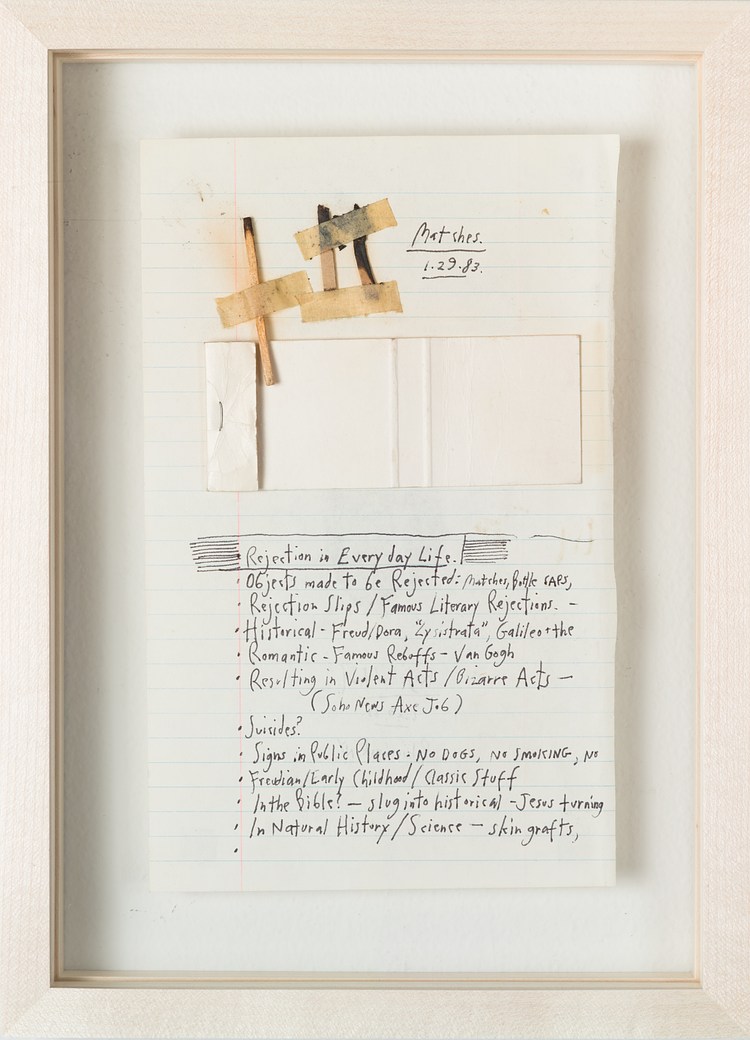 Matches.
1.29.83.
Rejection in Every day Life.
• Objects made to be Rejected: Matches, Bottle CAPS,
• Rejection Slips / Famous Literary Rejections. -
• Historical - Freud/Dora, "Lysistrata", Galileo + the
• Romantic - Famous Rebuffs - Van Gogh
• Resulting in Violent Acts / Bizarre Acts -
(Soho News Axe Job)
• Suicides?
• Signs in Public Places - NO DOGS, NO SMOKING, NO
• Freudian/Early Childhood/Classic Stuff
• In the Bible? - slug into historical - Jesus turning
• In Natural History/Science - skin grafts,
•